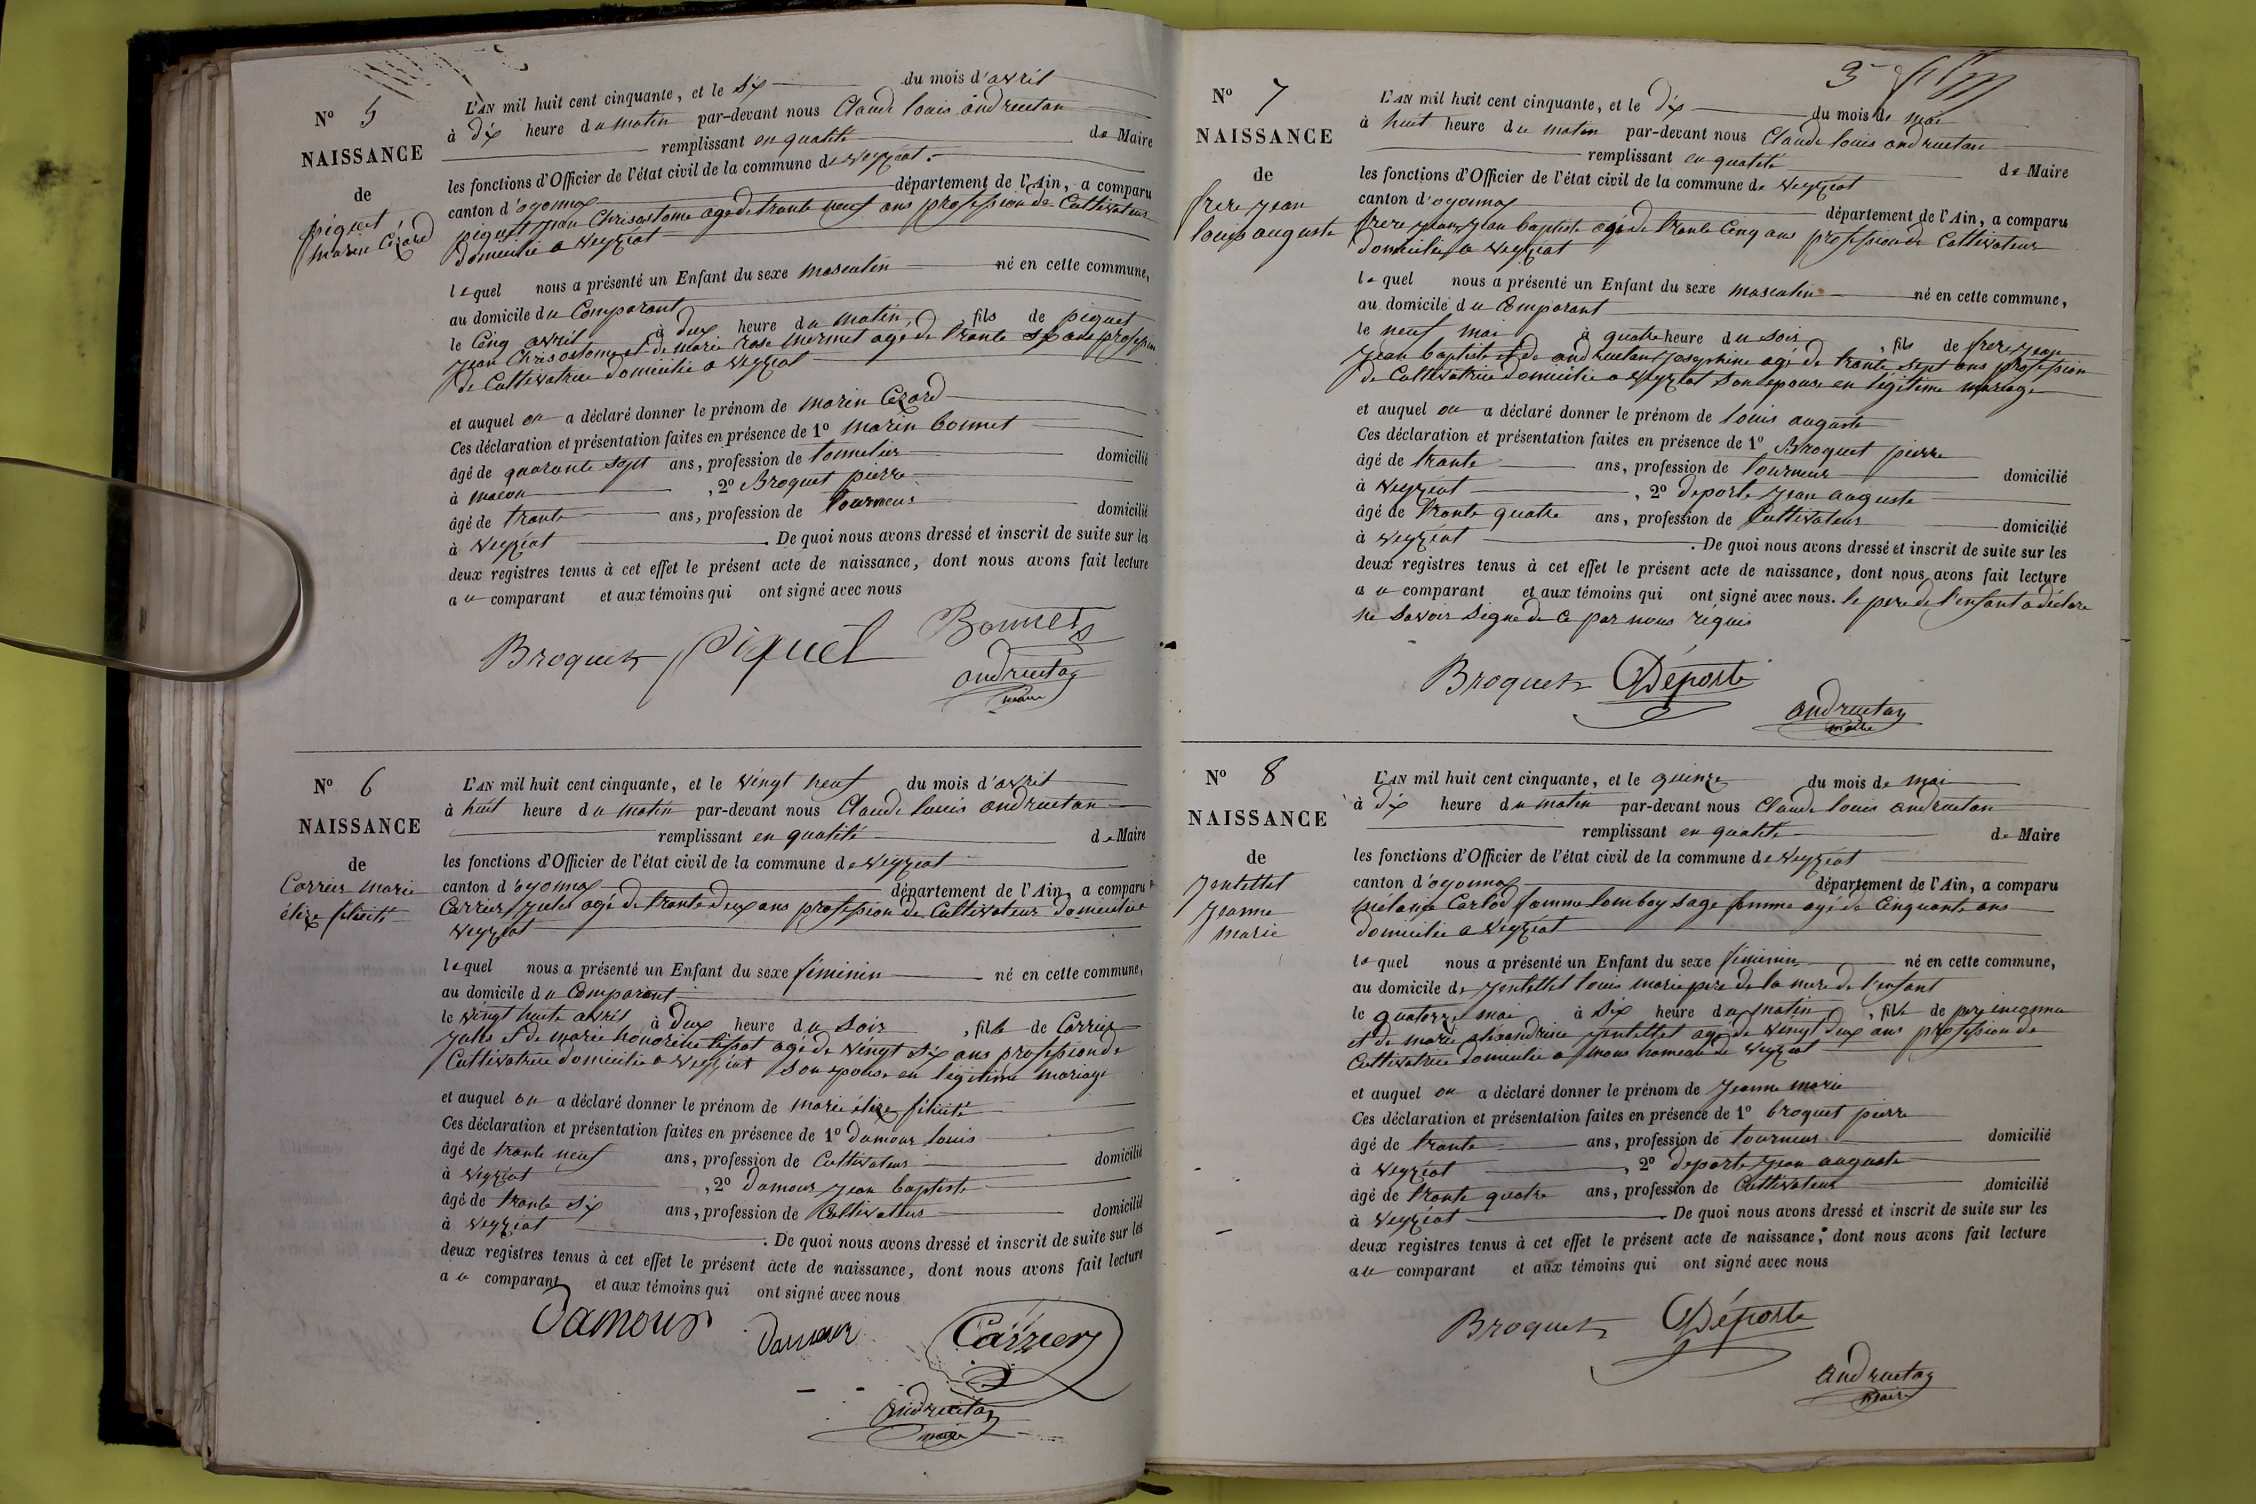 N° 5
NAISSANCE
de
piquet
marin Cézard
L'AN mil huit cent cinquante, et le Six du mois d'avril
à dix heure du matin par-devant nous Claude louis andruetan
remplissant en qualité de Maire
les fonctions d'Officier de l'état civil de la commune de veyziat.
canton d'oyonnax département de l'Ain, a comparu
piquet jean Chrisostome agé de trante neuf ans profession de Cultivateur
domicilié a veyziat
lequel nous a présenté un Enfant du sexe masculin né en cette commune,
au domicile du Comparant
le Cinq avril à deux heure du matin, fils de piquet
jean Chrisostome et de marie rose mermet agé de trante six ans profession
de Cultivatrice domicilié a veyziat
et auquel on a déclaré donner le prénom de marin Cézard
Ces déclaration et présentation faites en présence de 1° marin bonnet
âgé de quarante sept ans, profession de tonnelier domicilié
à macon, 2° Broquet pierre
âgé de trante ans, profession de tourneur domicilié
à veyziat. De quoi nous avons dressé et inscrit de suite sur les
deux registres tenus à cet effet le présent acte de naissance, dont nous avons fait lecture
au comparant et aux témoins qui ont signé avec nous
Bonnet
Broquet piquet
andruetan
maire
N° 6
NAISSANCE
de
Carrier marie
élize félicité
L'AN mil huit cent cinquante, et le vingt neuf du mois d'avril
à huit heure du matin par-devant nous Claude louis andruetan
remplissant en qualité de Maire
les fonctions d'Officier de l'état civil de la commune de veyziat
canton d'oyonnax département de l'Ain, a comparu
Carrier jules agé de trante deux ans profession de Cultivateur domicilié a
veyziat
lequel nous a présenté un Enfant du sexe féminin né en cette commune,
au domicile du Comparant
le vingt huit avril à deux heure du soir, fille de Carrier
jules et de marie honorine agé de vingt six ans profession de
Cultivatrice domicilié a veyziat son epouse en légitime mariage
et auquel on a déclaré donner le prénom de marie élize félicité
Ces déclaration et présentation faites en présence de 1° damour louis
âgé de trante neuf ans, profession de Cultivateur domicilié
à veyziat, 2° damour jean baptiste
âgé de trante six ans, profession de Cultivateur domicilié
à veyziat. De quoi nous avons dressé et inscrit de suite sur les
deux registres tenus à cet effet le présent acte de naissance, dont nous avons fait lecture
au comparant et aux témoins qui ont signé avec nous
Damour Damour Carrier
andruetan
maire
3
N° 7
NAISSANCE
de
frere jean
louis auguste
L'AN mil huit cent cinquante, et le dix du mois de mai
à huit heure du matin par-devant nous Claude louis andruetan
remplissant en qualité de Maire
les fonctions d'Officier de l'état civil de la commune de veyziat
canton d'oyonnax département de l'Ain, a comparu
frere jean jean baptiste agé de trante Cinq ans profession de Cultivateur
domicilié a veyziat
lequel nous a présenté un Enfant du sexe masculin né en cette commune,
au domicile du Comparant
le neuf mai à quatre heure du soir, fils de frere jean
jean baptiste et de andruetan josephine agé de trante sept ans profession
de Cultivatrice domicilié a veyziat son epouse en légitime mariage
et auquel on a déclaré donner le prénom de louis auguste
Ces déclaration et présentation faites en présence de 1° Broquet pierre
âgé de trante ans, profession de tourneur domicilié
à veyziat, 2° deporte jean auguste
âgé de trante quatre ans, profession de Cultivateur domicilié
à veyziat. De quoi nous avons dressé et inscrit de suite sur les
deux registres tenus à cet effet le présent acte de naissance, dont nous avons fait lecture
au comparant et aux témoins qui ont signé avec nous. le pere de l'enfant a déclare
ne savoir signé de ce par nous réquis
Broquet Déporte
andruetan
maire
N° 8
NAISSANCE
de
jentellet
jeanne
marie
L'AN mil huit cent cinquante, et le quinze du mois de mai
à dix heure du matin par-devant nous Claude louis andruetan
remplissant en qualité de Maire
les fonctions d'Officier de l'état civil de la commune de veyziat
canton d'oyonnax département de l'Ain, a comparu
mélanie Carlod famme lomboy sage femme agé de Cinquante ans
domicilié a veyziat
laquel nous a présenté un Enfant du sexe féminin né en cette commune,
au domicile de jentellet louis marie pere de la mere de l'enfant
le quatorze mai à six heure du matin, fille de pere inconnu
et de marie aléxandrine jentellet agé de vingt deux ans profession de
Cultivatrice domicilié a mons hameau de veyziat
et auquel on a déclaré donner le prénom de jeanne marie
Ces déclaration et présentation faites en présence de 1° broquet pierre
âgé de trante ans, profession de tourneur domicilié
à veyziat, 2° deporte jean auguste
âgé de trante quatre ans, profession de Cultivateur domicilié
à veyziat. De quoi nous avons dressé et inscrit de suite sur les
deux registres tenus à cet effet le présent acte de naissance, dont nous avons fait lecture
au comparant et aux témoins qui ont signé avec nous
Broquet Déporte
andruetan
maire